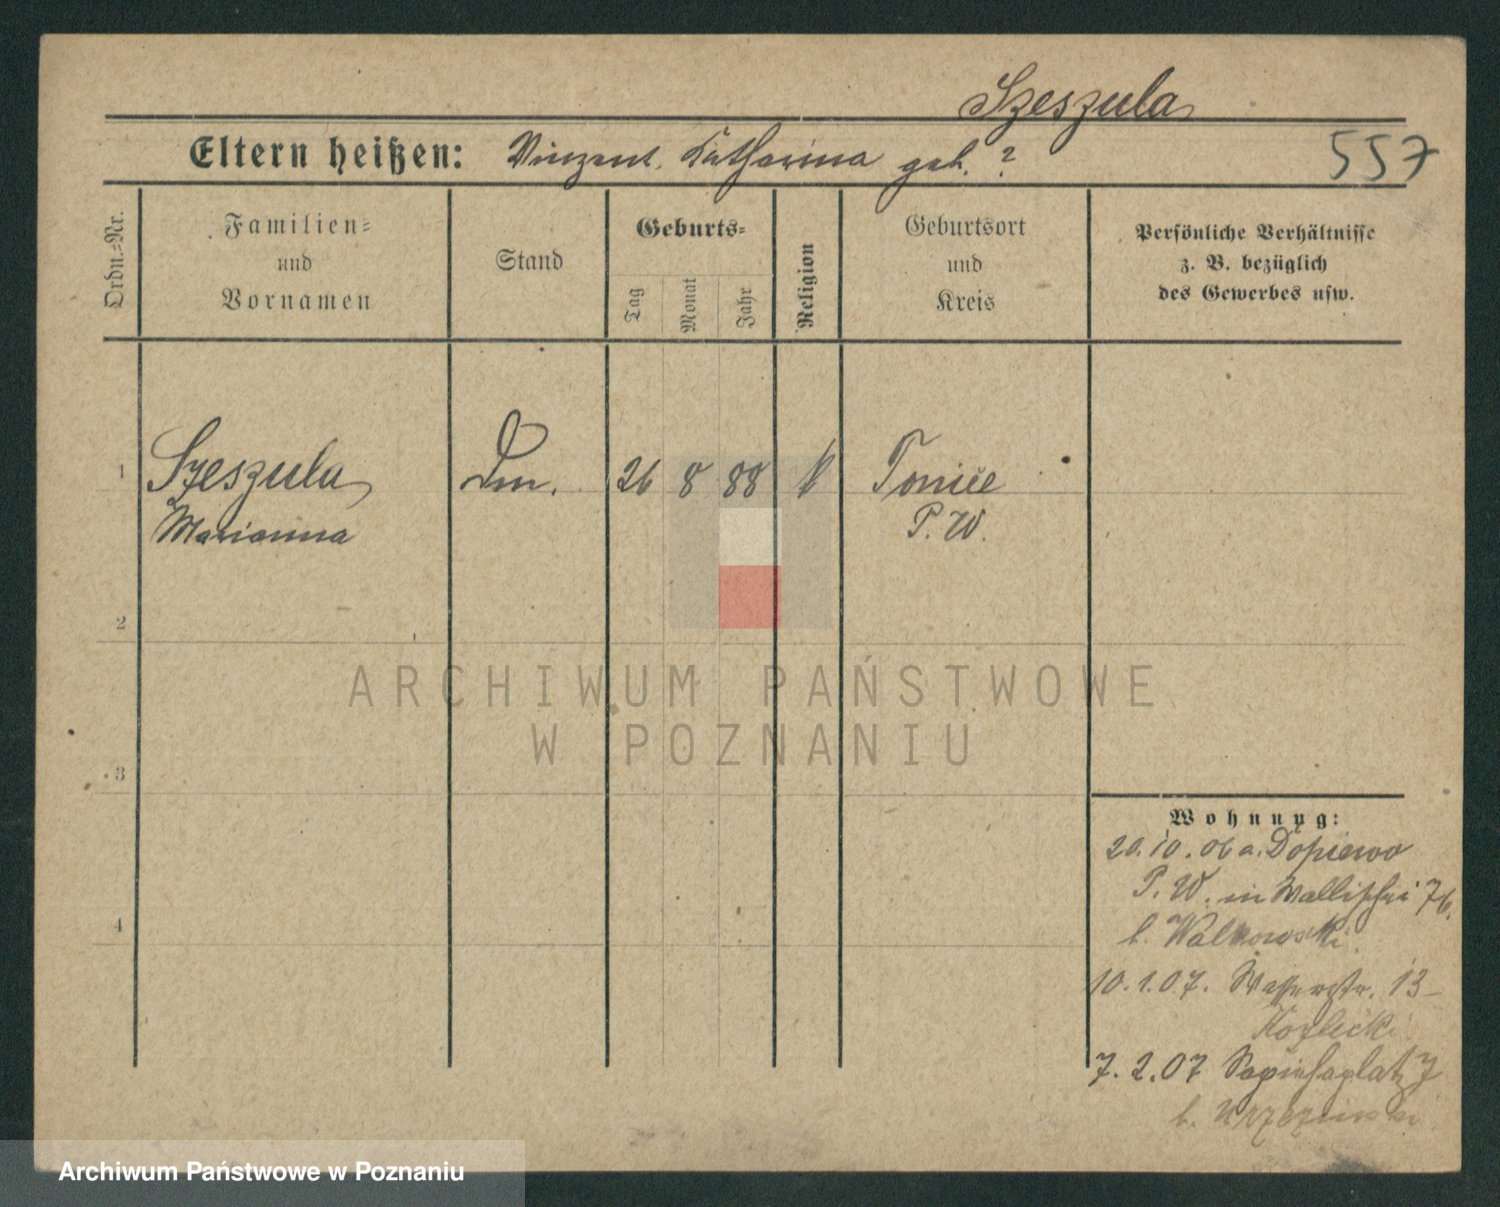 Szeszula
Eltern heißen: Vinzent. Katharina geb. ?
557
Ordn.=Nr.
Familien=
und
Vornamen
Stand
Geburts=
Tag
Monat
Jahr
Religion
Geburtsort
und
Kreis
Persönliche Verhältnisse
z. B. bezüglich
des Gewerbes usw.
1 Szeszula
Marianna
26 8 88 k
P. W.
2
3
4
Wohnung:
20.10.06 a. Dopiewo
P. W. in Wallischei 76.
b. Walkowski.
10.1.07. Wasserstr. 13
Kozlecki
7.2.07 Sapiehaplatz 7
b.
ARCHIWUM PAŃSTWOWE
W POZNANIU
Archiwum Państwowe w Poznaniu